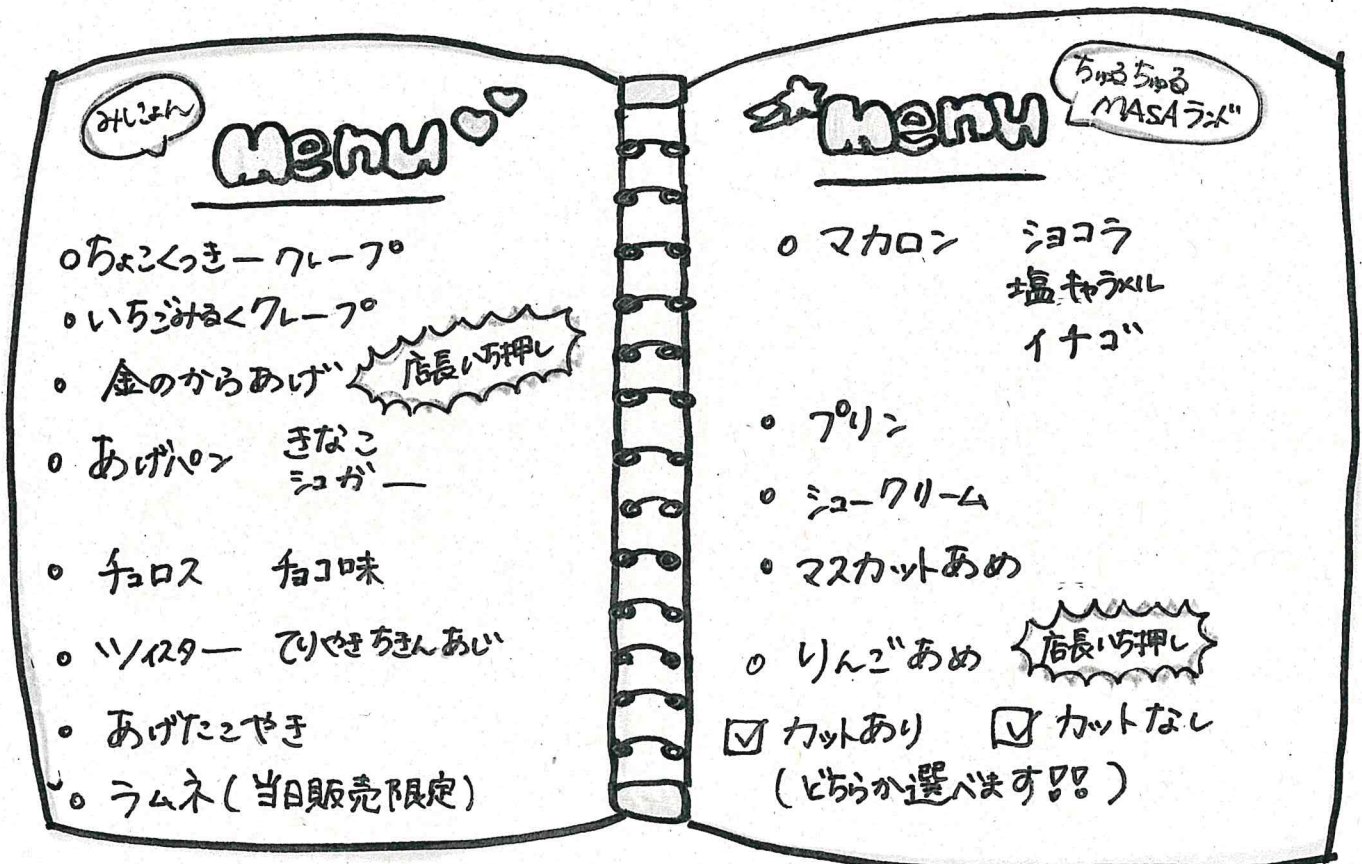 みじょん
Menu
○ちょこくっきークレープ
○いちごみるくクレープ
○金のからあげ 店長いち押し
○あげパン きなこ
シュガー
○チュロス チョコ味
○ツイスター てりやきちきんあじ
○あげたこやき
○ラムネ(当日販売限定)
Menu
ちゅるちゅる
MASAランド
○マカロン ショコラ
塩キャラメル
イチゴ
○プリン
○シュークリーム
○マスカットあめ
○りんごあめ 店長いち押し
☑カットあり ☑カットなし
(どちらか選べます!!)